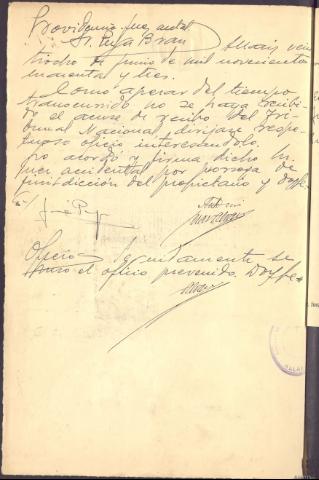 Providencia Juez acctal
Sr. Puya Bran Alhaurin vein
tiocho de junio de mil novecientos
cuarenta y tres.
Como apesar del tiempo
transcurrido no se haya recibi-
do el acuse de recibo del Tri-
bunal Nacional, dirijase respe-
tuoso oficio interesandolo.
Lo acordó y firma dicho Sr
Juez accidental por prorroga de
jurisdicción del propietario y doy fe.
José Puya
Ante mi
Oficio Seguidamente se
el oficio prevenido. Doy fe.